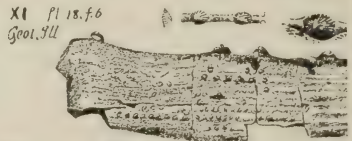 XI Pl 18.f.6
Geol. Ill